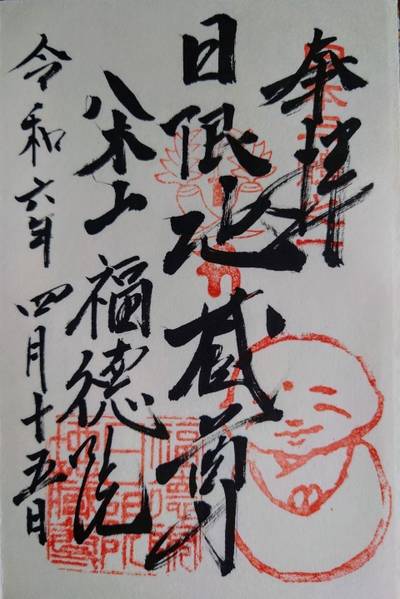 奉拝
日限地蔵尊
八木山 福徳院
令和六年 四月十五日